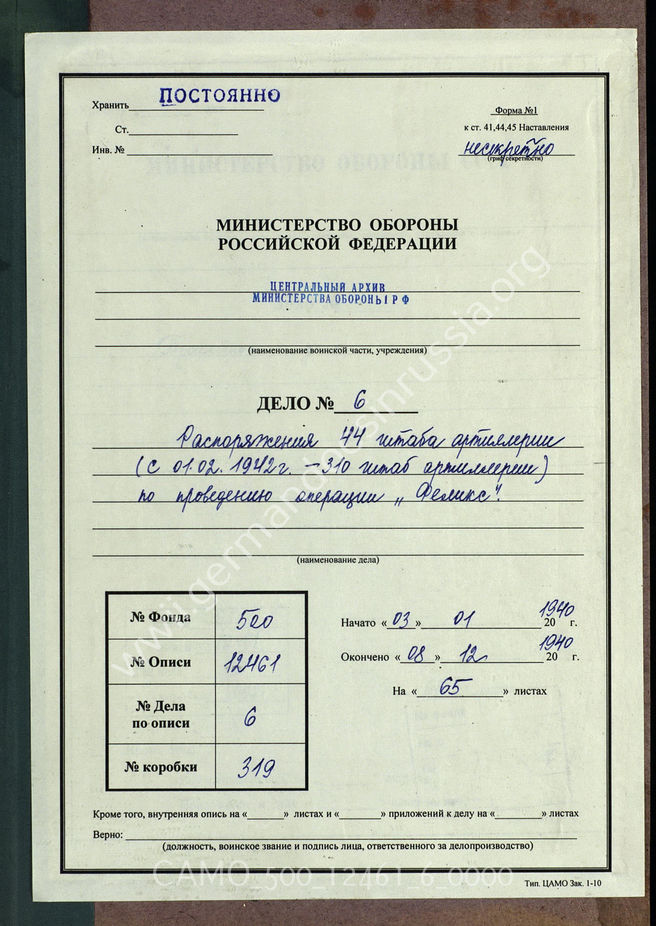 Хранить ПОСТОЯННО
Форма №1
Ст.
к ст. 41,44,45 Наставления
Инв. №
несекретно
(гриф секретности)
МИНИСТЕРСТВО ОБОРОНЫ
РОССИЙСКОЙ ФЕДЕРАЦИИ
ЦЕНТРАЛЬНЫЙ АРХИВ
МИНИСТЕРСТВА ОБОРОНЫ РФ
(наименование воинской части, учреждения)
ДЕЛО № 6
Распоряжения 44 штаба артиллерии
(с 01.02.1942г. – 310 штаб артиллерии)
по проведению операции „Феликс".
(наименование дела)
№ Фонда 500
№ Описи 12461
№ Дела
по описи 6
№ коробки 319
Начато «03» 01 1940 20 г.
Окончено «08» 12 1940 20 г.
На «65» листах
Кроме того, внутренняя опись на «» листах и «» приложений к делу на «» листах
Верно:
(должность, воинское звание и подпись лица, ответственного за делопроизводство)
Тип. ЦАМО Зак. 1-10
www.germandocsinrussia.org
CAMO_500_12461_6_0000